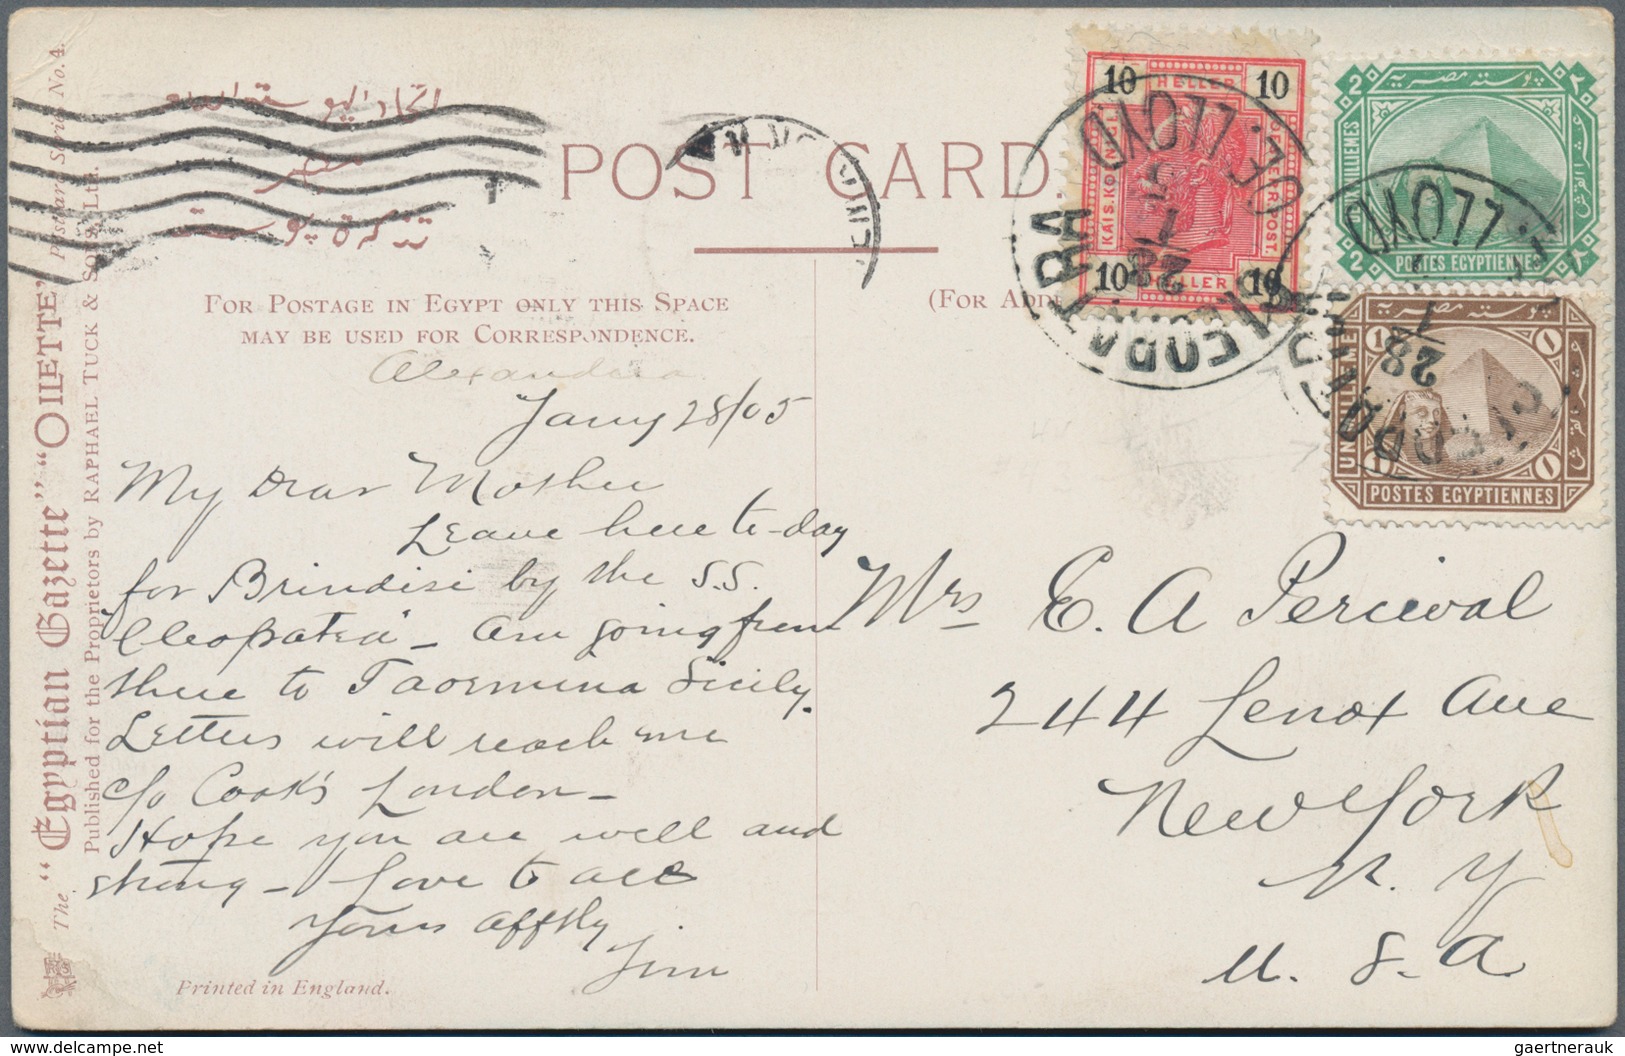 The "Egyptian Gazette" "OILETTE" Postcard Series No. 4.
Published for the Proprietors by RAPHAEL TUCK & SONS, Ltd.
تذكرة بوستة
POST CARD
FOR POSTAGE IN EGYPT ONLY THIS SPACE
MAY BE USED FOR CORRESPONDENCE.
(FOR ADD
Alexandria
Jany 28/05
My Dear Mother
Leave here to-day
for Brindisi by the S.S.
"Cleopatra" - Am going from
there to Taormina Sicily.
Letters will reach me
c/o Cook's London -
Hope you are well and
strong - Love to all
Yours affthy
Jim
Printed in England.
Mrs E. A Percival
244 Lenox Ave
New York
N. Y
U. S. A
10 HELLER 10
KAIS. KÖNIGL. ÖSTERR. POST.
10 HELLER 10
OE. LLOYD
CLEOPATRA
28
1
5
2 بوستة مصرية ٢
MILLIEMES
2 POSTES EGYPTIENNES ٢
OE. LLOYD
28
1
بوستة مصرية
1 ١
UN MILLIEME
1 ١
POSTES EGYPTIENNES
gaertnerauk